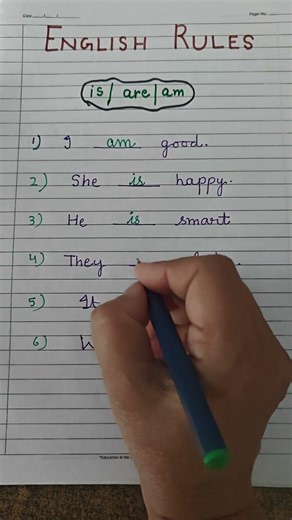 Date / /
Page No.
ENGLISH RULES
is / are / am
1) I am good.
2) She is happy.
3) He is smart
4) They
5) It
6)
"Education is the